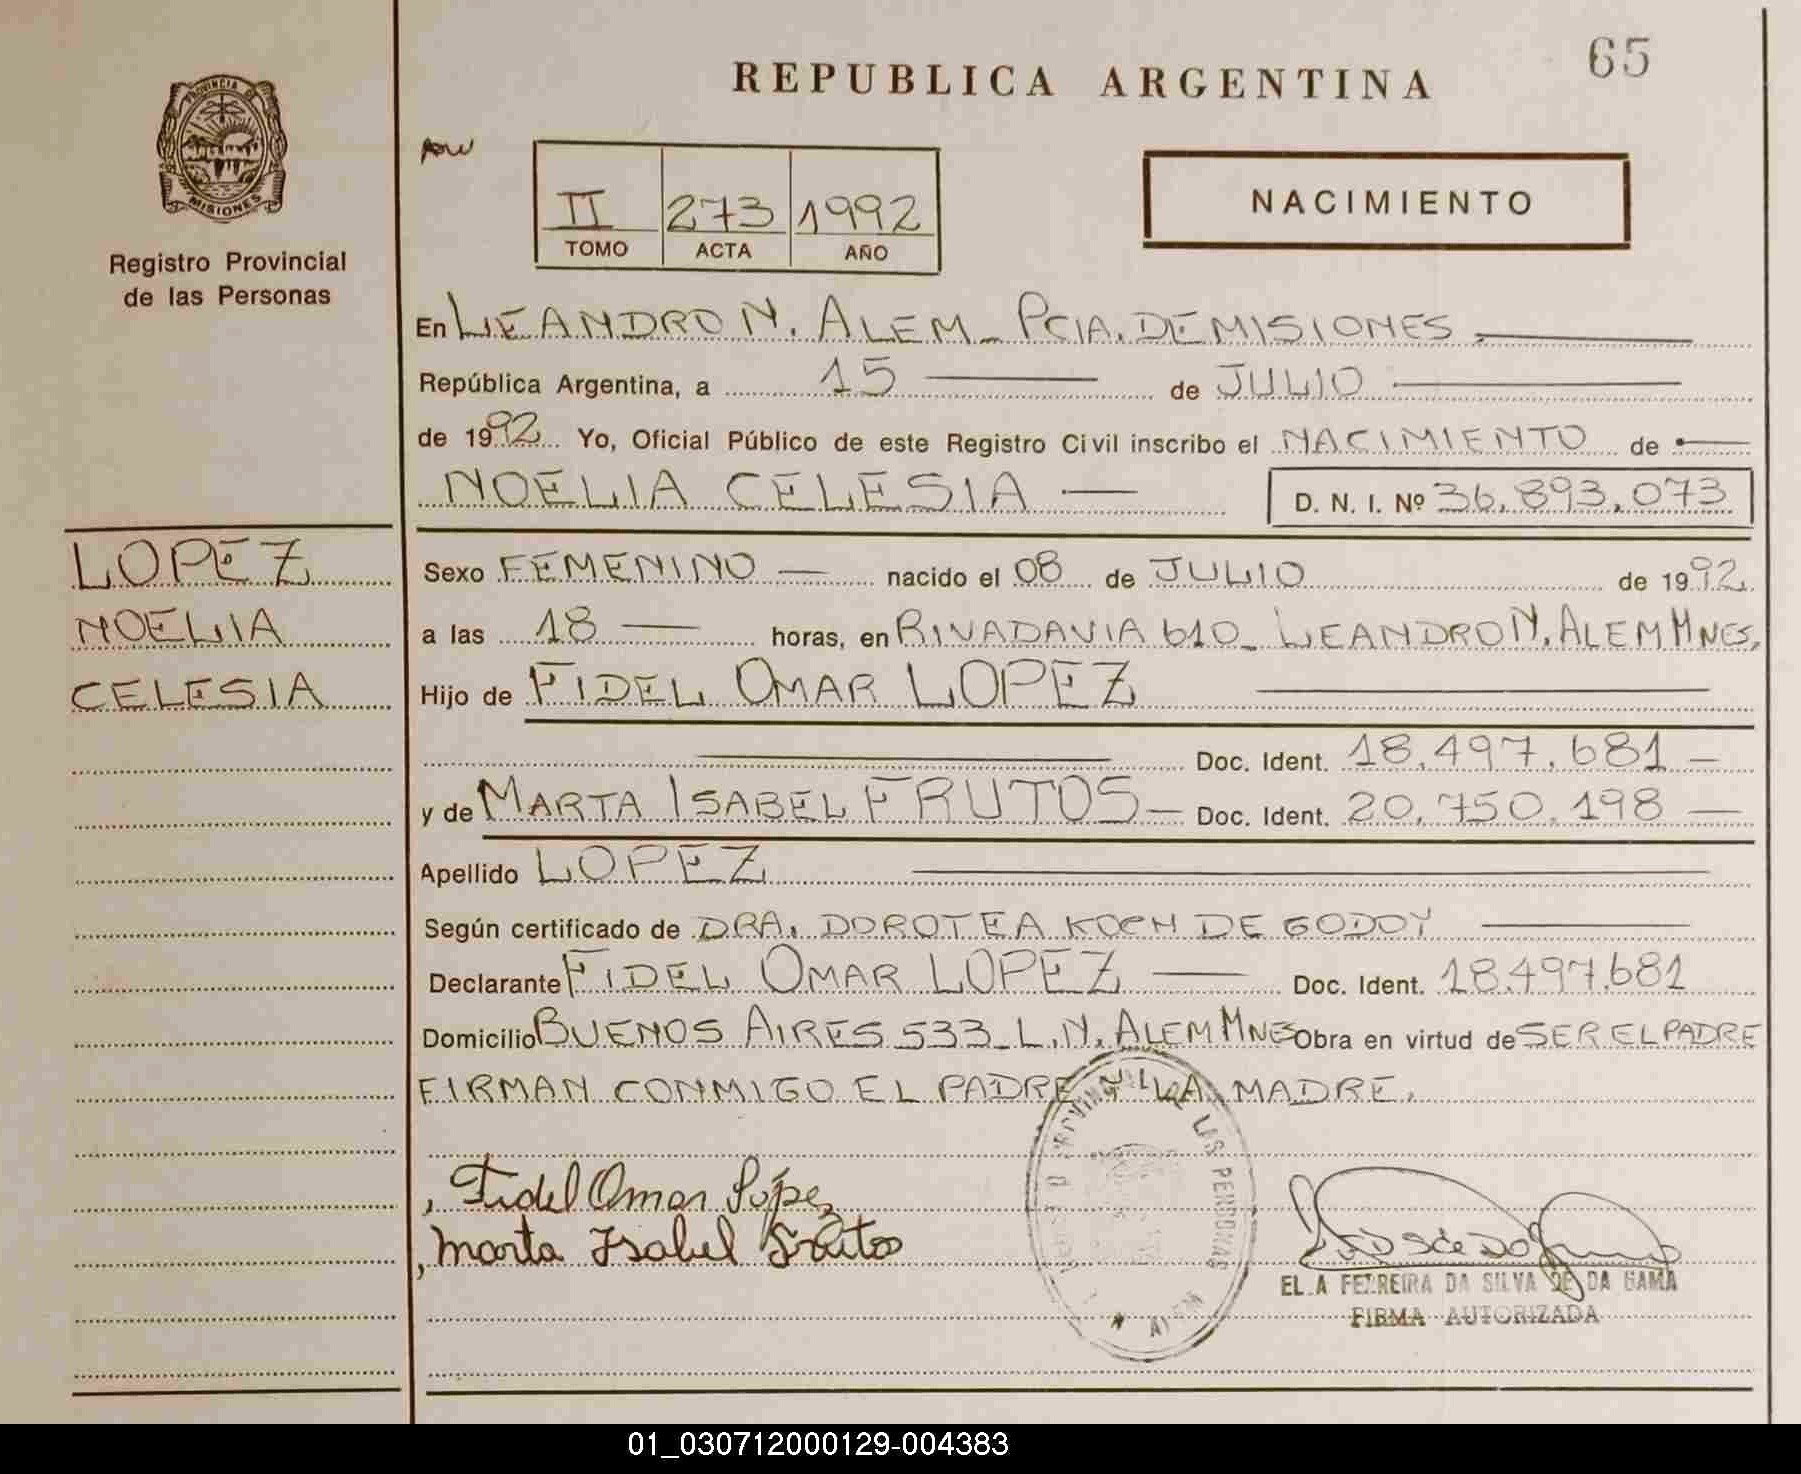 65
REPUBLICA ARGENTINA
PROVINCIA DE
MISIONES
Registro Provincial
de las Personas
II 273 1992
TOMO ACTA AÑO
NACIMIENTO
En LEANDRO N. ALEM - PCIA. DE MISIONES
República Argentina, a 15 de JULIO
de 1992 Yo, Oficial Público de este Registro Civil inscribo el NACIMIENTO de
NOELIA CELESIA D. N. I. Nº 36.893.073
LOPEZ
NOELIA
CELESIA
Sexo FEMENINO nacido el 08 de JULIO de 1992
a las 18 horas, en RIVADAVIA 610 - LEANDRO N. ALEM MNES.
Hijo de FIDEL OMAR LOPEZ
Doc. Ident. 18.497.681
y de MARTA ISABEL FRUTOS Doc. Ident. 20.750.198
Apellido LOPEZ
Según certificado de DRA. DOROTEA KOCH DE GODOY
Declarante FIDEL OMAR LOPEZ Doc. Ident. 18.497.681
Domicilio BUENOS AIRES 533 - L.N. ALEM MNES Obra en virtud de SER EL PADRE
FIRMAN CONMIGO EL PADRE Y LA MADRE.
Fidel Omar López
Marta Isabel Frutos
DE LAS PERSONAS
FERREIRA DA SILVA DE DA GAMA
FIRMA AUTORIZADA
01_030712000129-004383